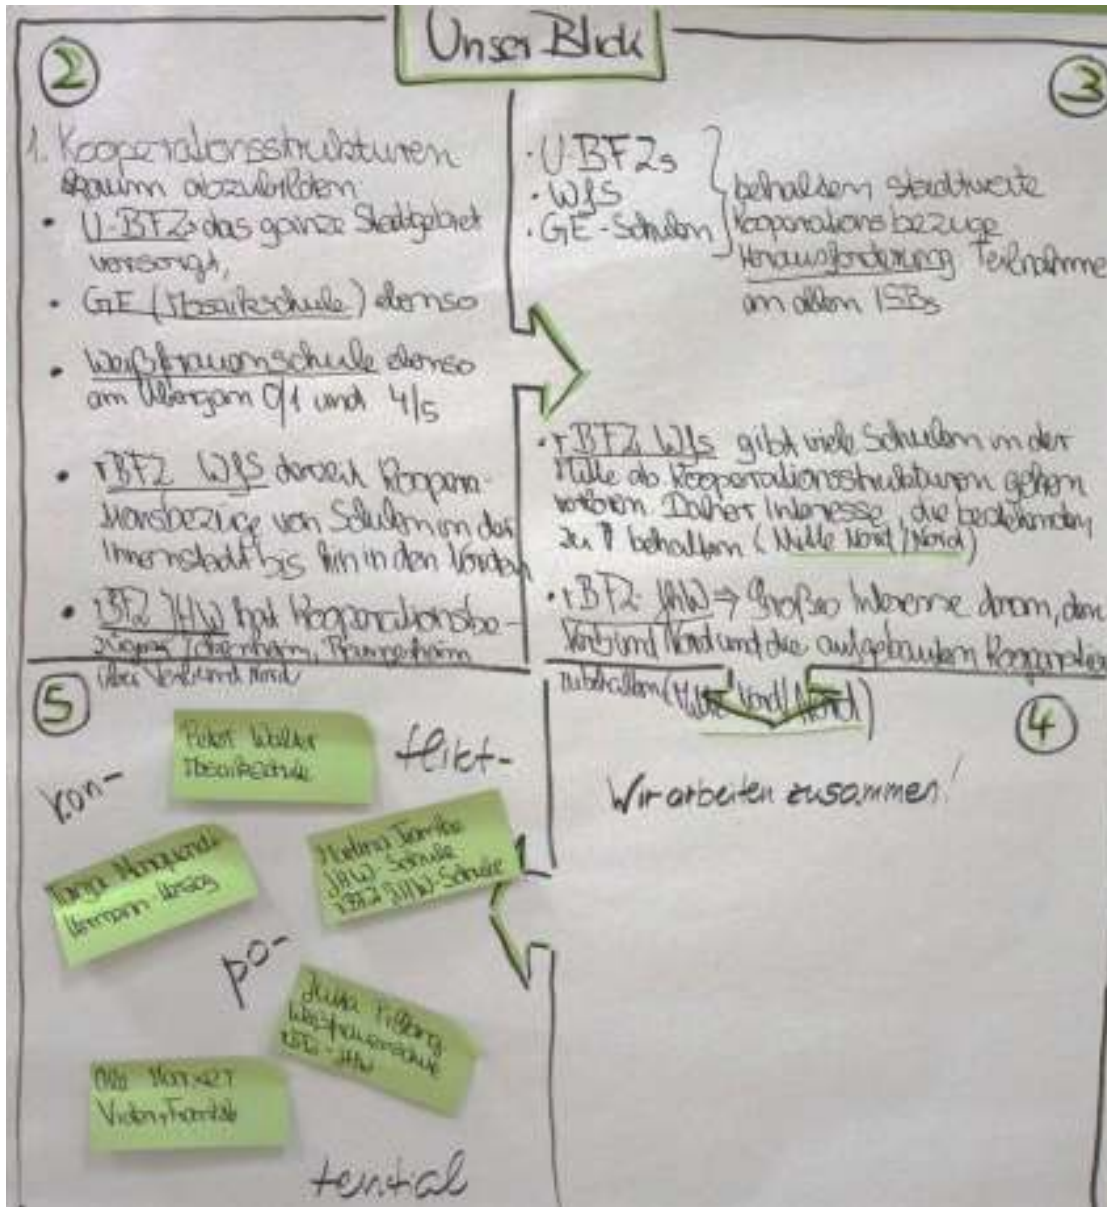 Unser Blick
2
1. Kooperationsstrukturen
kaum abzubilden:
• Ü-BFZs das ganze Stadtgebiet
versorgt,
• GE (Mosaikschule) ebenso
• Weißfrauenschule ebenso
am Übergang 0/1 und 4/5
• rBFZ WfS derzeit Koopera-
tionsbezüge von Schulen in der
Innenstadt bis hin in den Norden
• rBFZ JHW hat Kooperationsbe-
Praunheim
über Verbund Nord
3
· Ü-BFZs
· WfS
· GE-Schulen
behalten stadtweite
Kooperationsbezüge
Herausforderung Teilnahme
an allen ISBs
· rBFZ WfS gibt viele Schulen in der
Mitte ab. Kooperationsstrukturen gehen
verloren. Daher Interesse, die bestehenden
zu behalten (Mitte Nord/Nord)
· rBFZ JHW ⇒ Großes Interesse daran, den
Verbund Nord und die aufgebauten Kooperation
zu behalten (Mitte Nord/Nord)
4
Wir arbeiten zusammen!
5
Peter Walter
Mosaikschule
flikt-
kon-
Martina
JHW-Schule
rBFZ JHW-Schule
Tanja
Hermann Herzog
po-
Jutta
Weißfrauenschule
rBFZ-JHW
Viktor, Frankl
tential